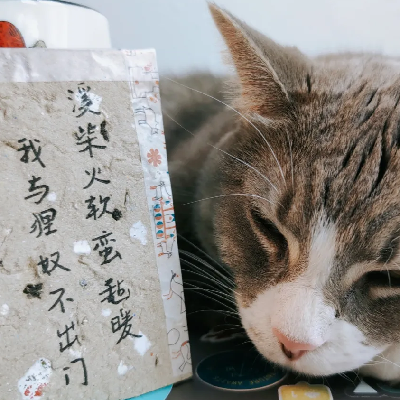 溪柴火软蛮毡暖
我与狸奴不出门